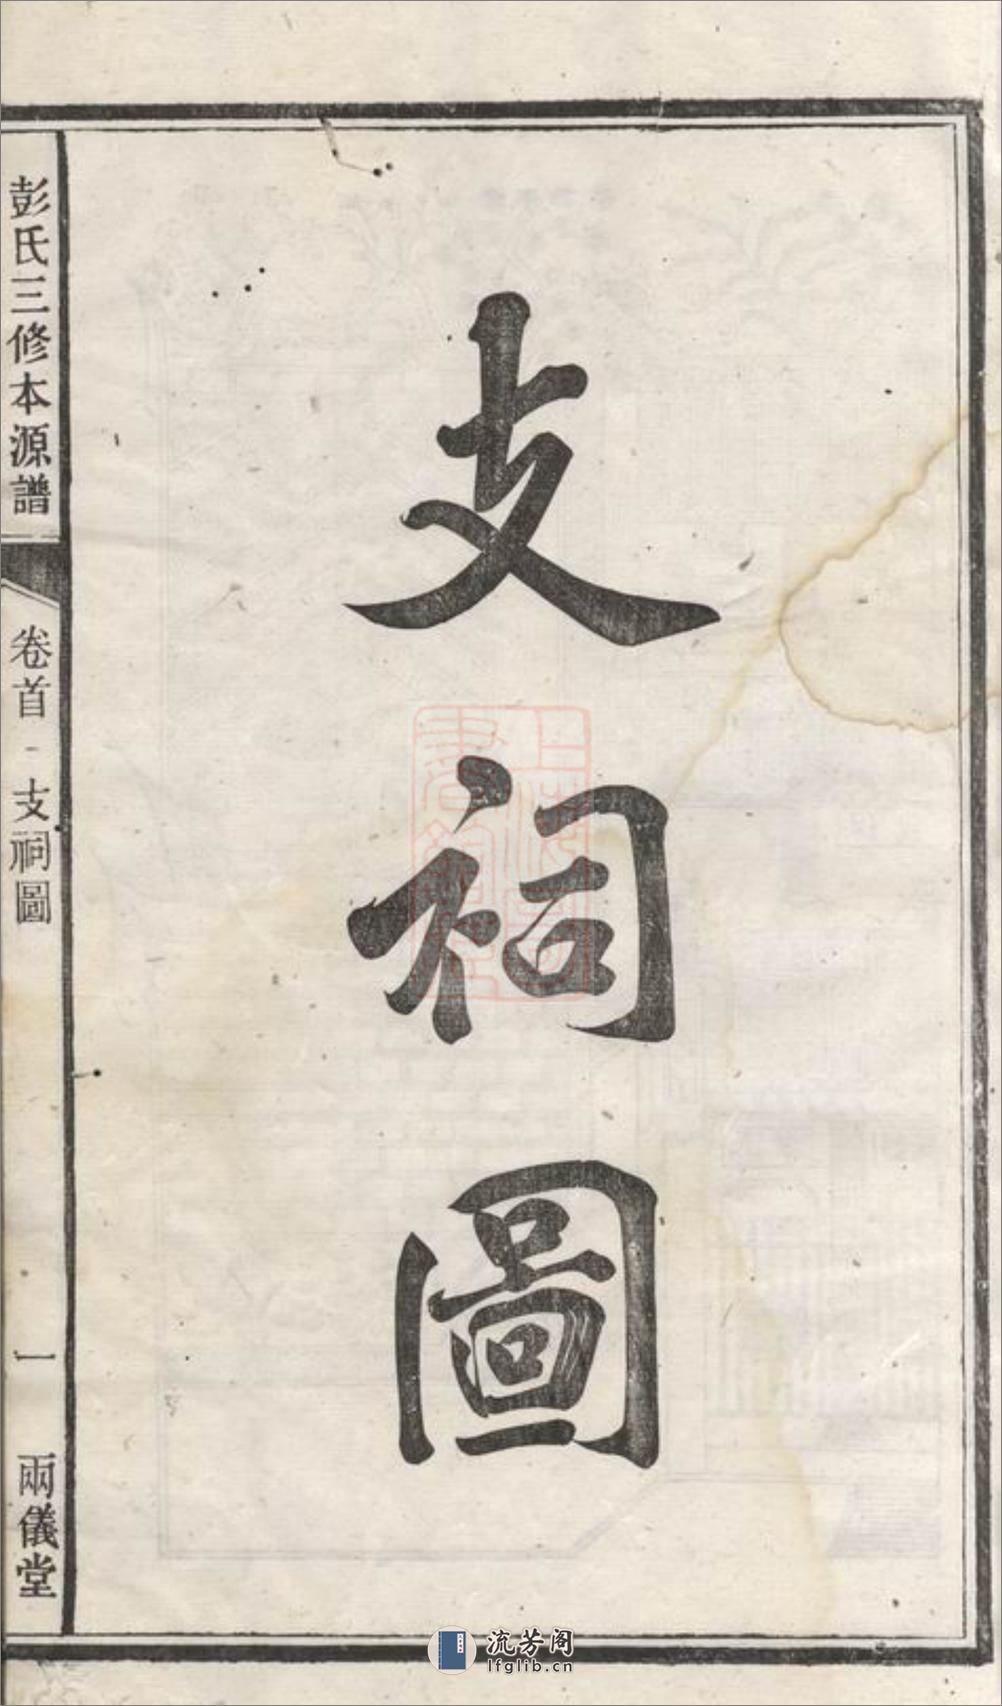 支祠圖
彭氏三修本源譜
卷首
支祠圖
一
兩儀堂
流芳阁
lfglib.cn